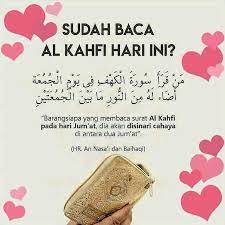 SUDAH BACA
AL KAHFI HARI INI?
مَنْ قَرَأَ سُورَةَ الْكَهْفِ فِي يَوْمِ الْجُمُعَةِ
أَضَاءَ لَهُ مِنَ النُّورِ مَا بَيْنَ الْجُمُعَتَيْنِ
"Barangsiapa yang membaca surat Al Kahfi
pada hari Jum'at, dia akan disinari cahaya
di antara dua Jum'at".
(HR. An Nasa'i dan Baihaqi)